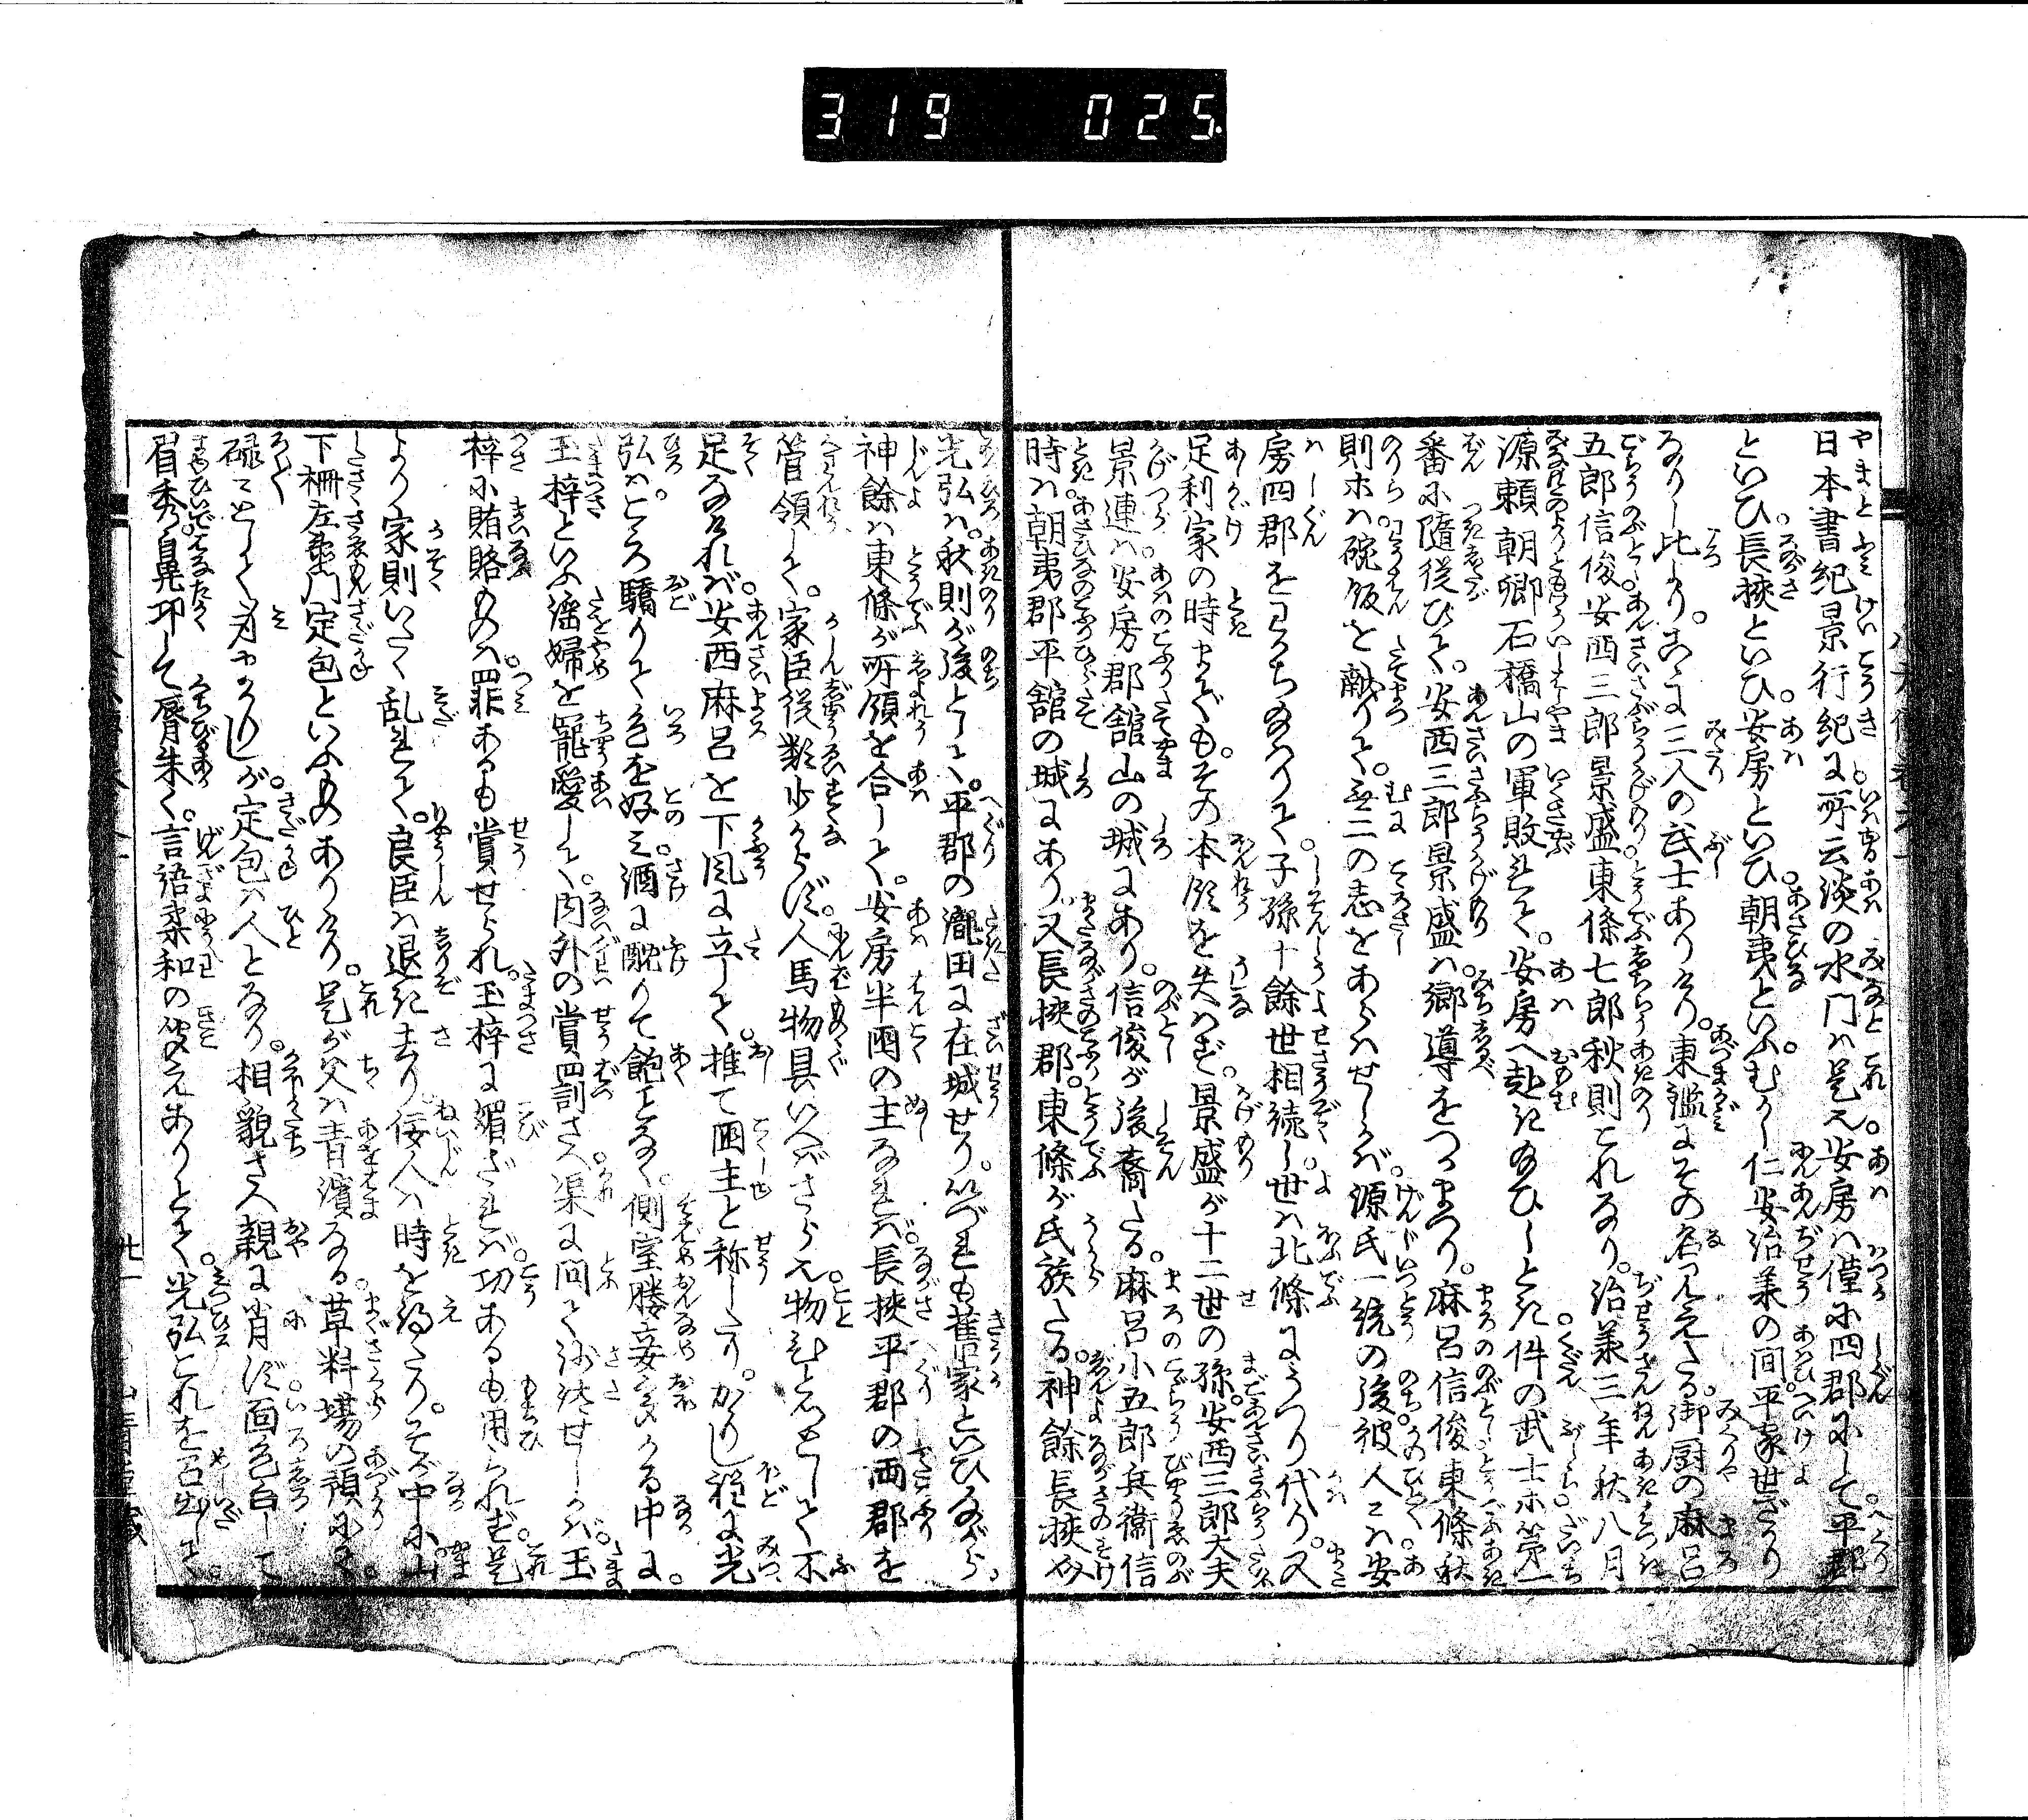 319 025.
日本書紀景行紀に所云淡の水門は是也。安房は僅に四郡にして平郡
といひ。長狭といひ。安房といひ。朝夷といふ。むかし仁安治承の間。平家世ざかり
なりし比より。こゝに三人の武士ありけり。東鑑にその名っ見えたる。御厨の麻呂
五郎信俊。安西三郎景盛。東條七郎秋則これなり。治承三年秋八月
源頼朝卿石橋山の軍敗れて。安房へ赴き給ひしとき。件の武士ホ第一
番に隨従ひて。安西三郎景盛は。郷導をつかまつり。麻呂信俊東條秋
則ホは。碗飯を献りて。無二の志をあらはせしかば。源氏一統の後。彼人々は安
房四郡をわかち給はりて。子孫十餘世相続し。世は北條にうつり代り。又
足利家の時までも。その本領を失はず。景盛が十二世の孫。安西三郎大夫
景連は。安房郡館山の城にあり。信俊が後裔たる。麻呂小五郎兵衛信
時は。朝夷郡平館の城にあり。又長挾郡。東條が氏族たる。神餘長挾介
光弘は。秋則が後として。平郡の瀧田に在城せり。いづれも舊家といひながら。
神餘は東條が所領を合して。安房半國の主なれば。長挾平郡の両郡を
管領して。家臣従類少からず。人馬物具いへばさら也。物ひとつとして不
足なければ。安西麻呂を下風に立して。推て國主と称したり。かゝりし程に光
弘は。こゝろ驕りて色を好み。酒に酖りて飽ことなく。側室媵妾多かる中に。
玉梓といふ淫婦を寵愛して。内外の賞罰さへ渠に問て沙汰せしかば。玉
梓に賄賂ものは。罪あるも賞せられ。玉梓に媚ざれば。功あるも用られず。是
より家則いたく乱れて。良臣は退き去り佞人は時を得たり。そが中に山
下柵左衛門定包といふものありけり。是が父は青濱なる。草料場の預にて。
禄こよなく身かろかりしが。定包は人となり。相貌さへ親に肖ず。面色白して
眉秀。鼻晃卬して唇朱く。言語柔和の聞えありとて。光弘これを召出して。